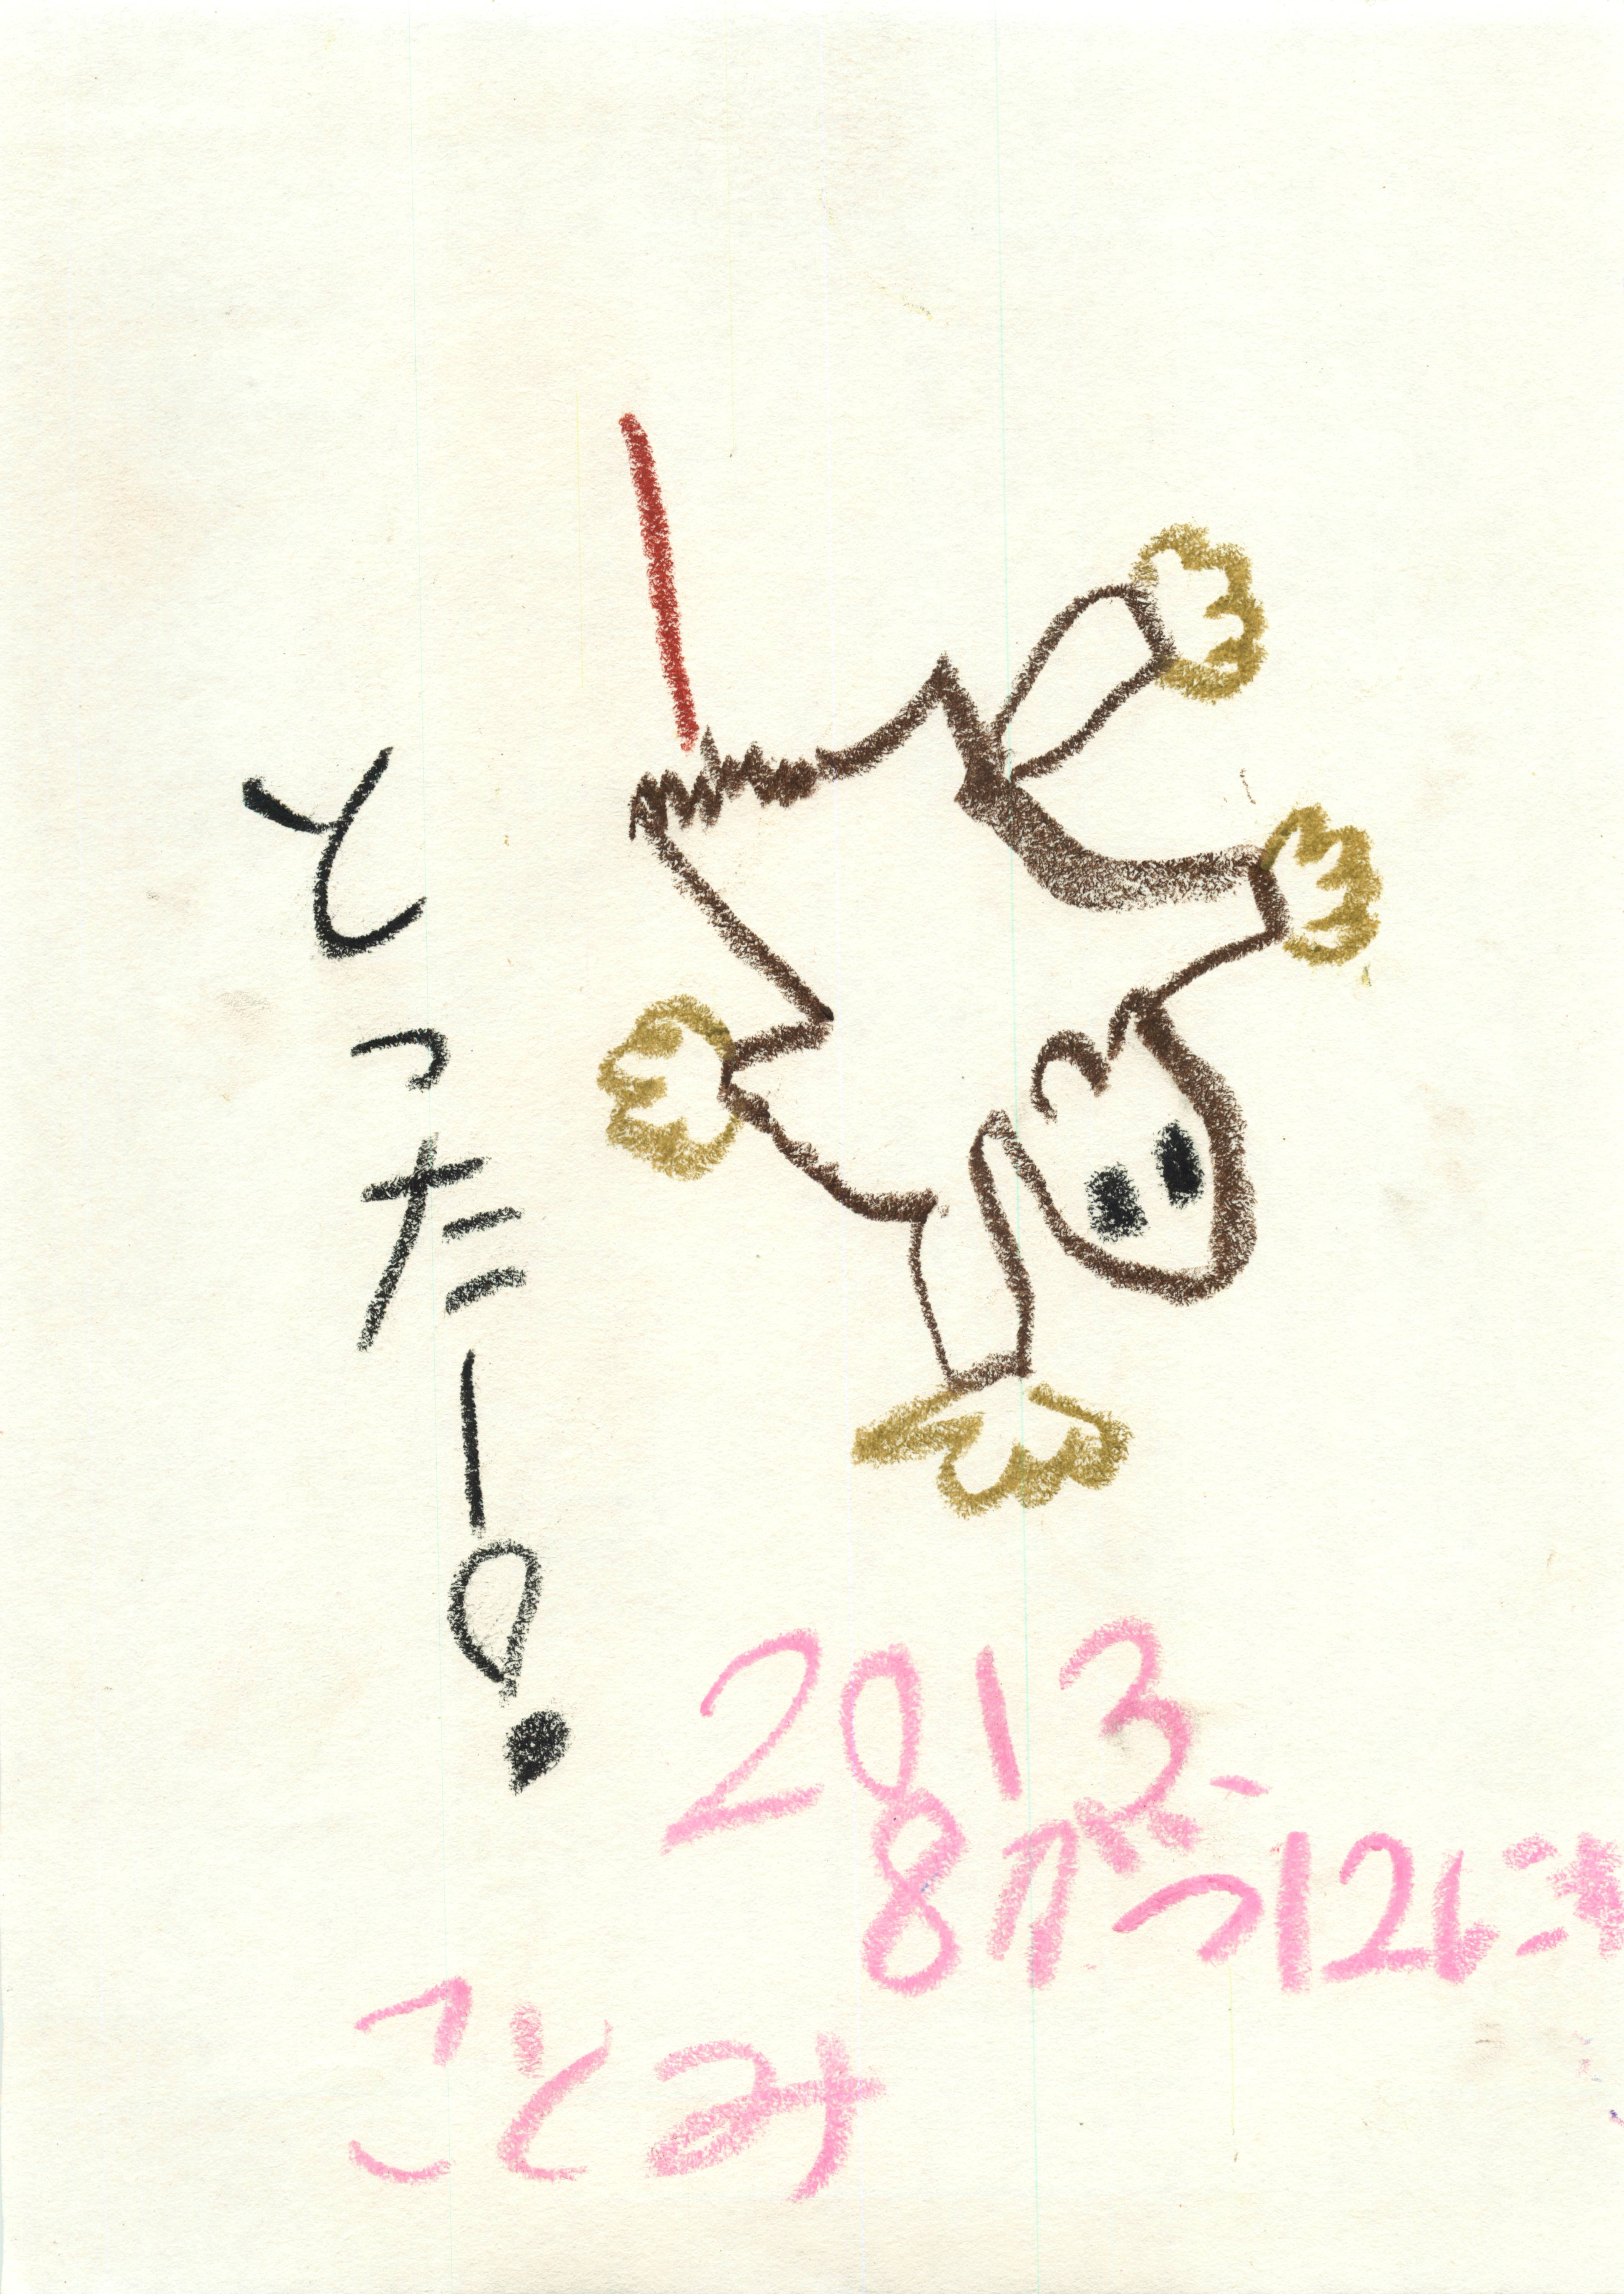 とったー!
2013
8がつ12にち
ことみ